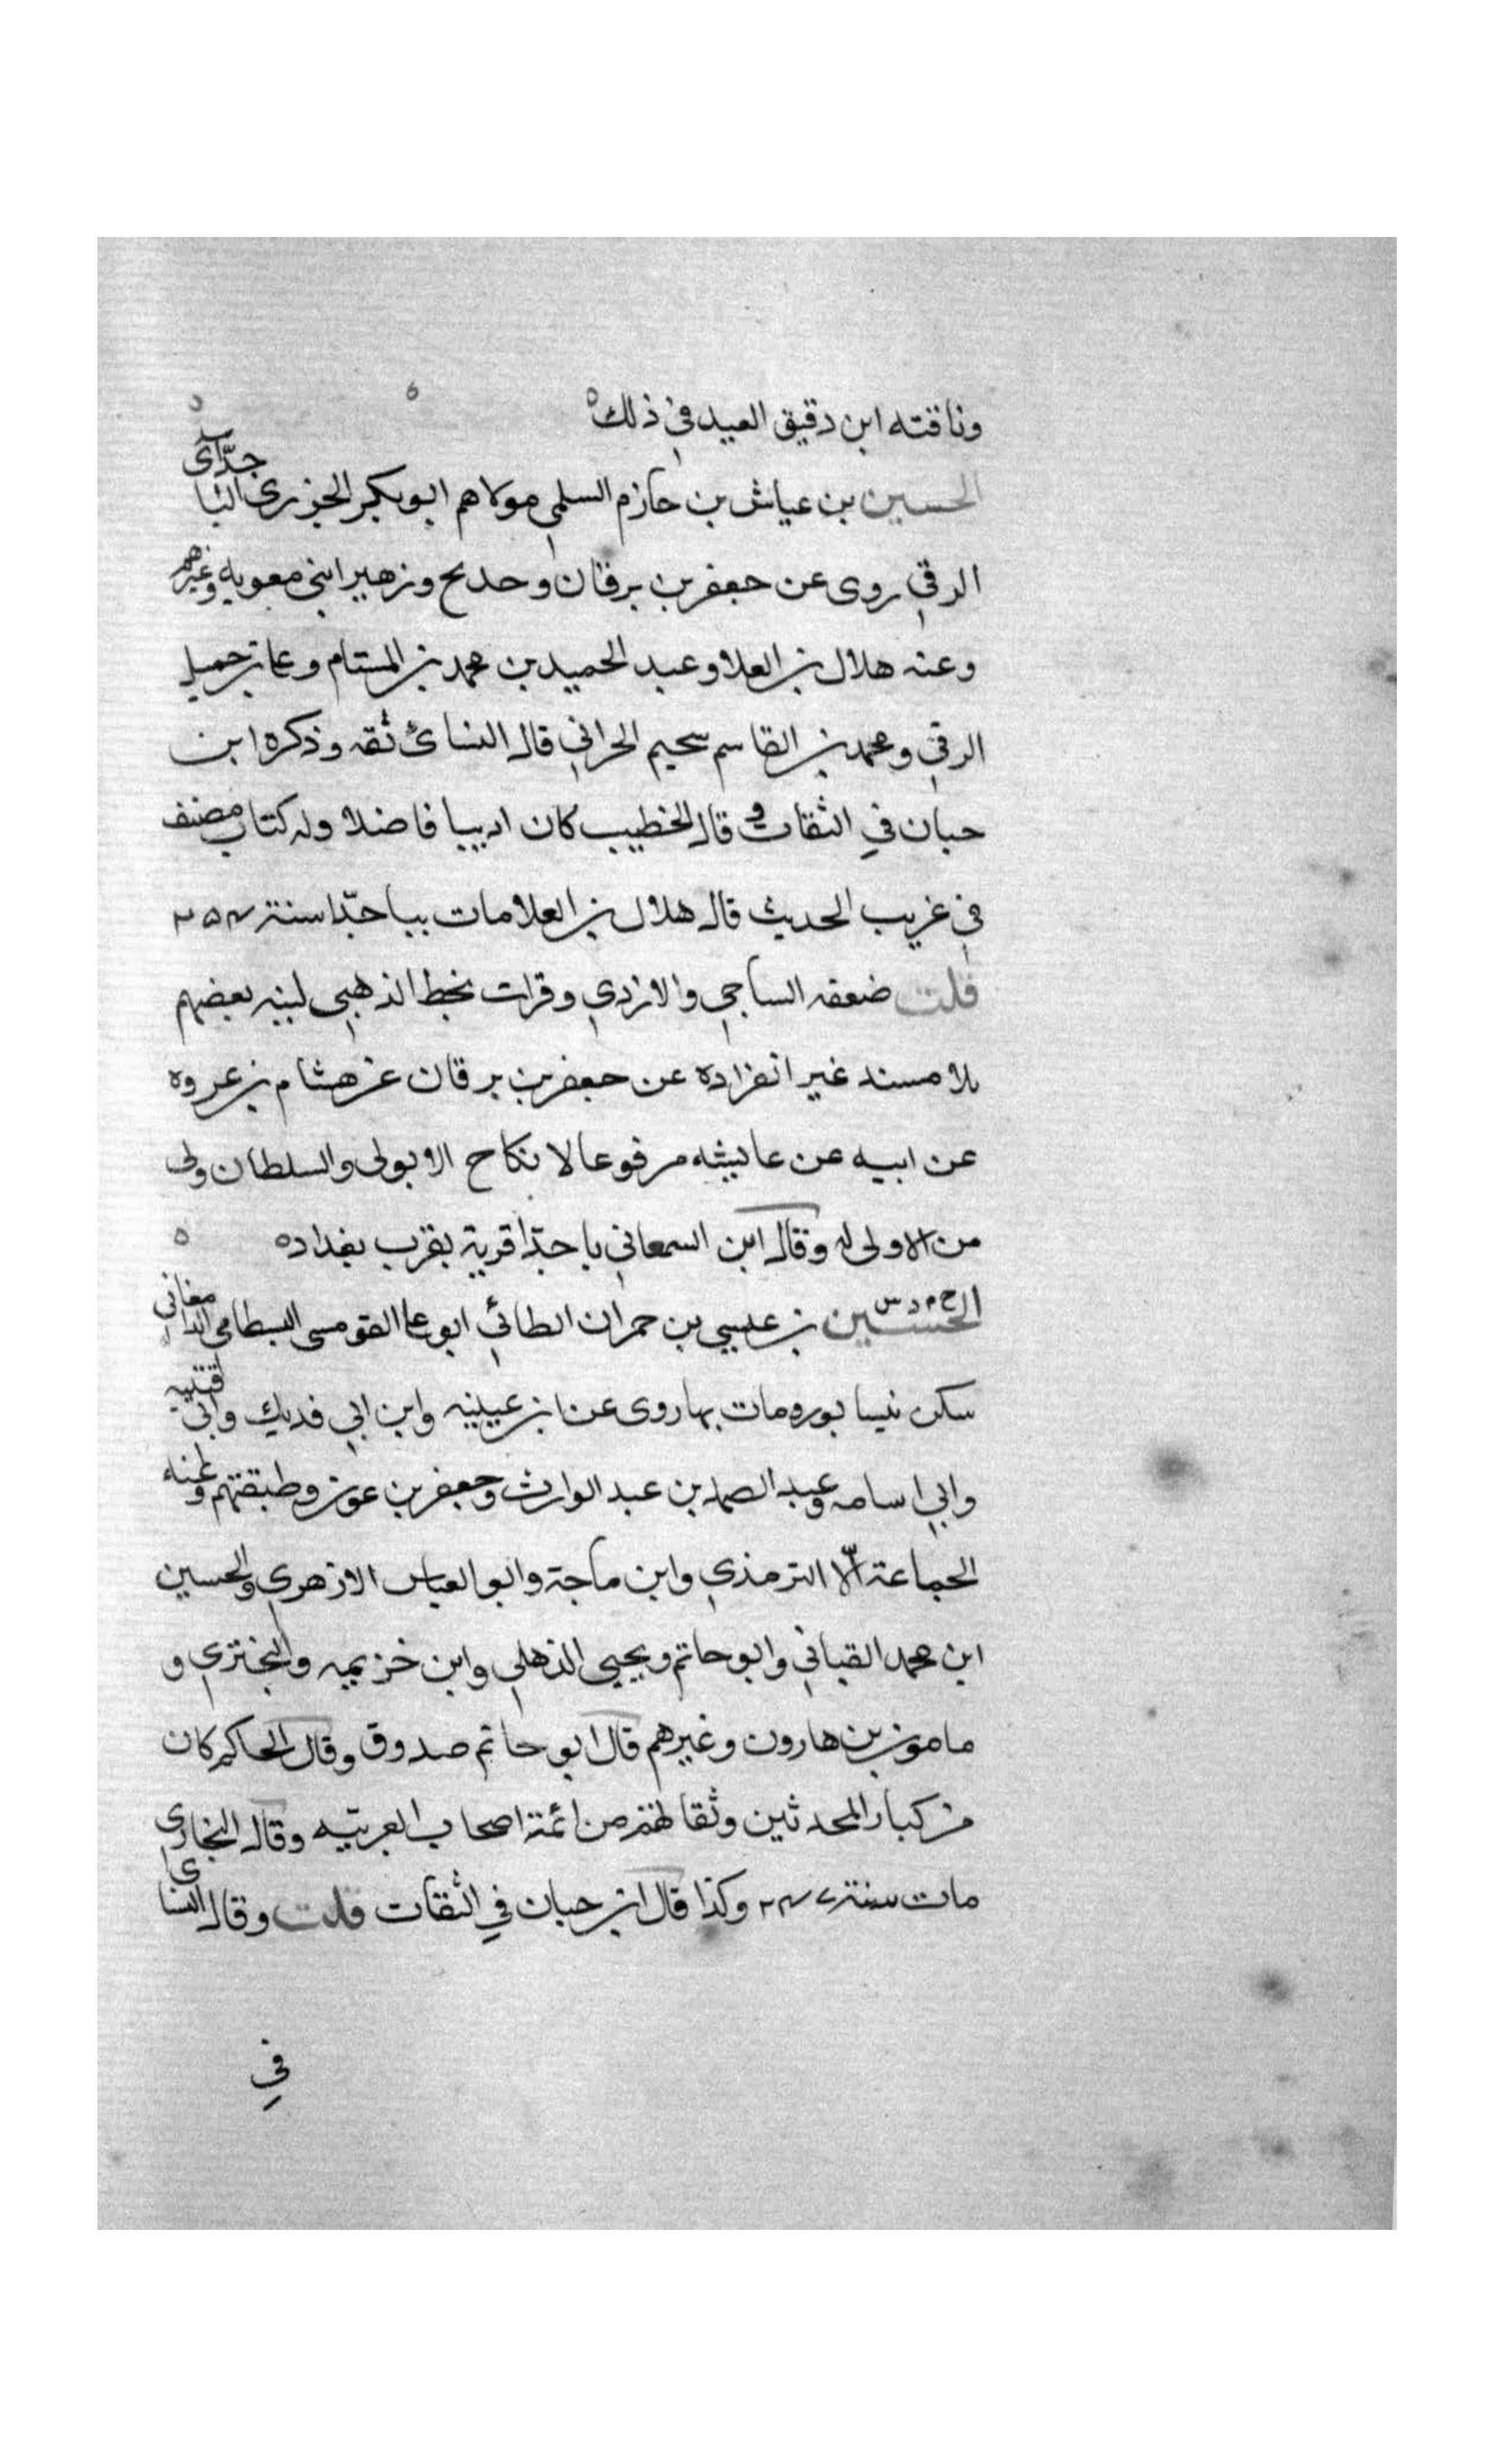 وناقته ابن دقيق العيد في ذلك ه
الحسين بن عياش بن حازم السلمي مولاهم ابو بكر الجزري الباجدّاى س
الرقي روى عن جعفر بن برقان وحديج وزهير ابني معويه وغيرهم
وعنه هلال بن العلا وعبد الحميد بن محمد بن المستام وعلي بن جميل
الرقي ومحمد بن القاسم سحيم الحراني قال النسائ ثقه وذكره ابن
حبان في الثقات و قال الخطيب كان اديبا فاضلا وله كتاب مصنف
في غريب الحديث قال هلال بن العلا مات بباجدّا سنة
قلت ضعفه الساجي والازدي وقرات بخط الذهبي لينه بعضهم
بلا مسند غير انفراده عن جعفر بن برقان عن هشام بن عروه
عن ابيه عن عايشه مرفوعا لا نكاح الا بولى والسلطان ولى
من لا ولى له وقال ابن السمعاني باجدّا قرية بقرب بغداد ه
الحسين خ م د س بن عيسي بن حمران الطائي ابو علي القومسى البسطامي الدامغاني
سكن نيسابور ومات بها روى عن ابن عيينه وابن ابي فديك وابي قتيبه
وابي اسامه وعبد الصمد بن عبد الوارث وجعفر بن عون وطبقتهم وعنه
الجماعة الّا الترمذي وابن ماجة وابو العباس الازهري والحسين
ابن محمد القباني وابو حاتم ويحيى الذهلي وابن خزيمه والبختري و
مامون بن هارون وغيرهم قال ابو حاتم صدوق وقال الحاكم كان
من كبار المحدثين وثقاتهم من ائمة اصحاب العربيّه وقال البخارى
مات سنة ٢٤٧ وكذا قال ابن حبان في الثقات قلت وقال النساى
في